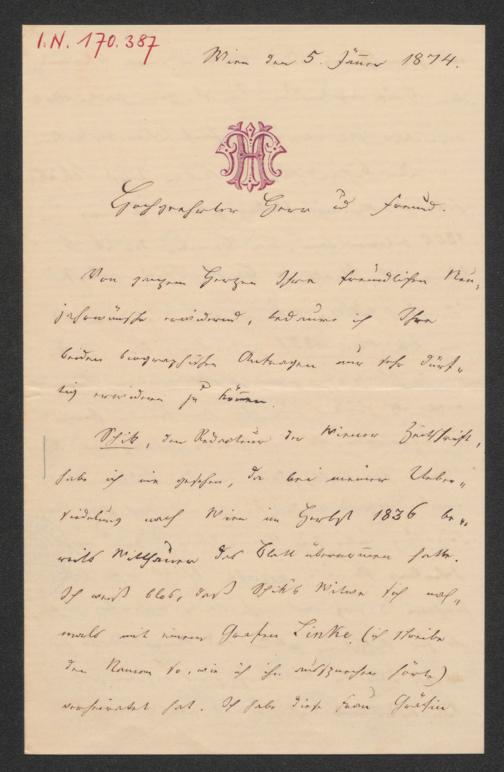 I.N. 170.387
Wien den 5. Jänner 1874.
Hochgeehrter Herr und Freund.
Von ganzem Herzen Ihre freundlichen Neu„
jahrswünsche erwidernd, bedaure ich Ihre
beiden biographischen Anfragen nur sehr dürf„
tig erwidern zu können.
Schik, den Redacteur der Wiener Zeitschrift,
habe ich nie gesehen, da bei meiner Ueber„
siedelung nach Wien im Herbst 1836 be„
reits Witthauer das Blatt übernommen hatte.
Ich weiß blos, daß Schik's Witwe sich noch„
mals mit einem Grafen Linke, (ich schreibe
den Namen so, wie ich ihn aussprechen hörte)
verheiratet hat. Ich habe diese Frau Gräfin